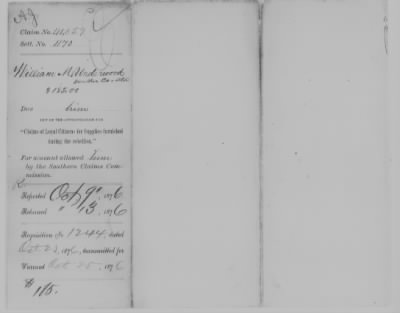 Claim No. 41,059
Sett. No. 1170
William M. Underwood
$185.00
Due him
OUT OF THE APPROPRIATION FOR
"Claims of Loyal Citizens for Supplies furnished
during the rebellion."
For amount allowed him
by the Southern Claims Com-
mission.
Reported Oct 9", 1876
Returned " 13, 1876
Requisition No. 1244, dated
Oct 23, 1876, transmitted for
Warrant Oct 25, 1876
185.